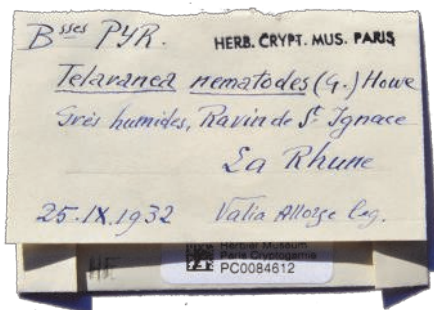 Bsses PYR. HERB. CRYPT. MUS. PARIS
Telaranea nematodes (G.) Howe
Grès humides, Ravin de St Ignace
La Rhune
25.IX.1932 Valia Allorge leg.
HE
Herbier Muséum
Paris Cryptogamie
PC0084612